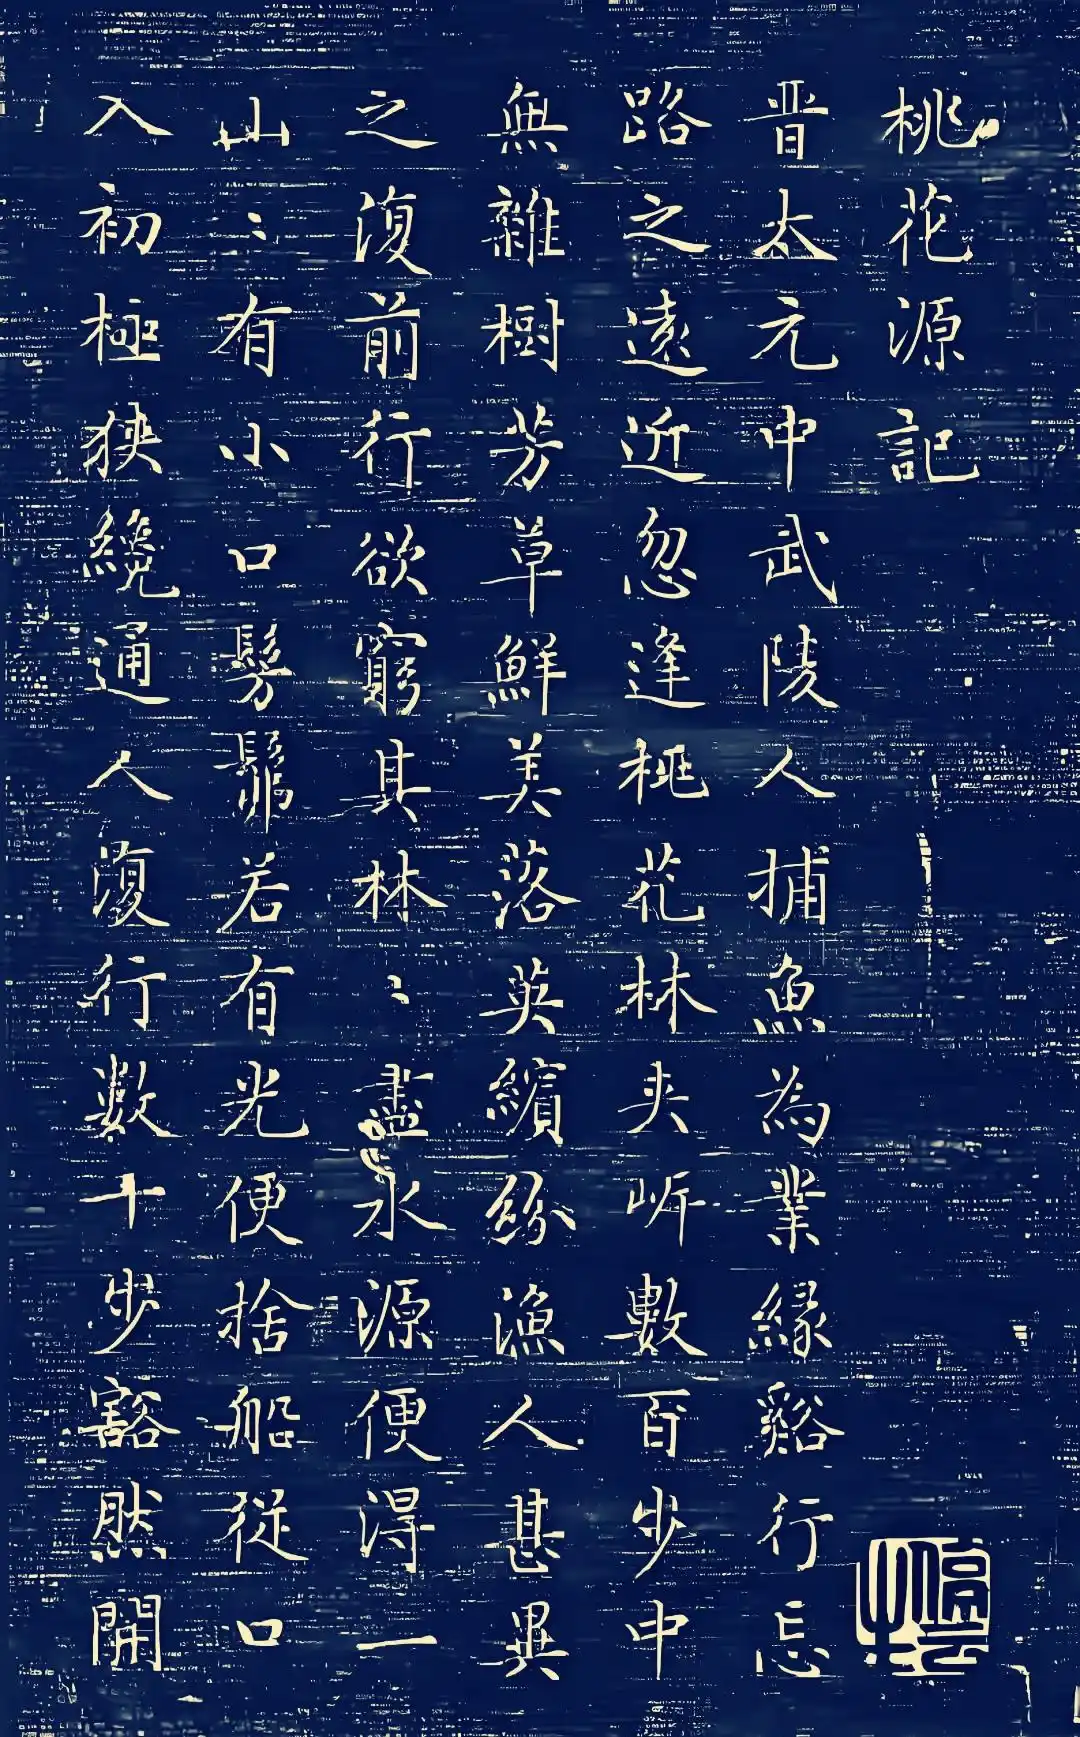 桃花源記
晉太元中武陵人捕魚為業緣谿行忘
路之遠近忽逢桃花林夾岍數百步中
無雜樹芳草鮮美落英繽紛漁人甚異
之復前行欲窮其林〻盡水源便得一
山〻有小口髣髴若有光便捨船從口
入初極狹纔通人復行數十步豁然開